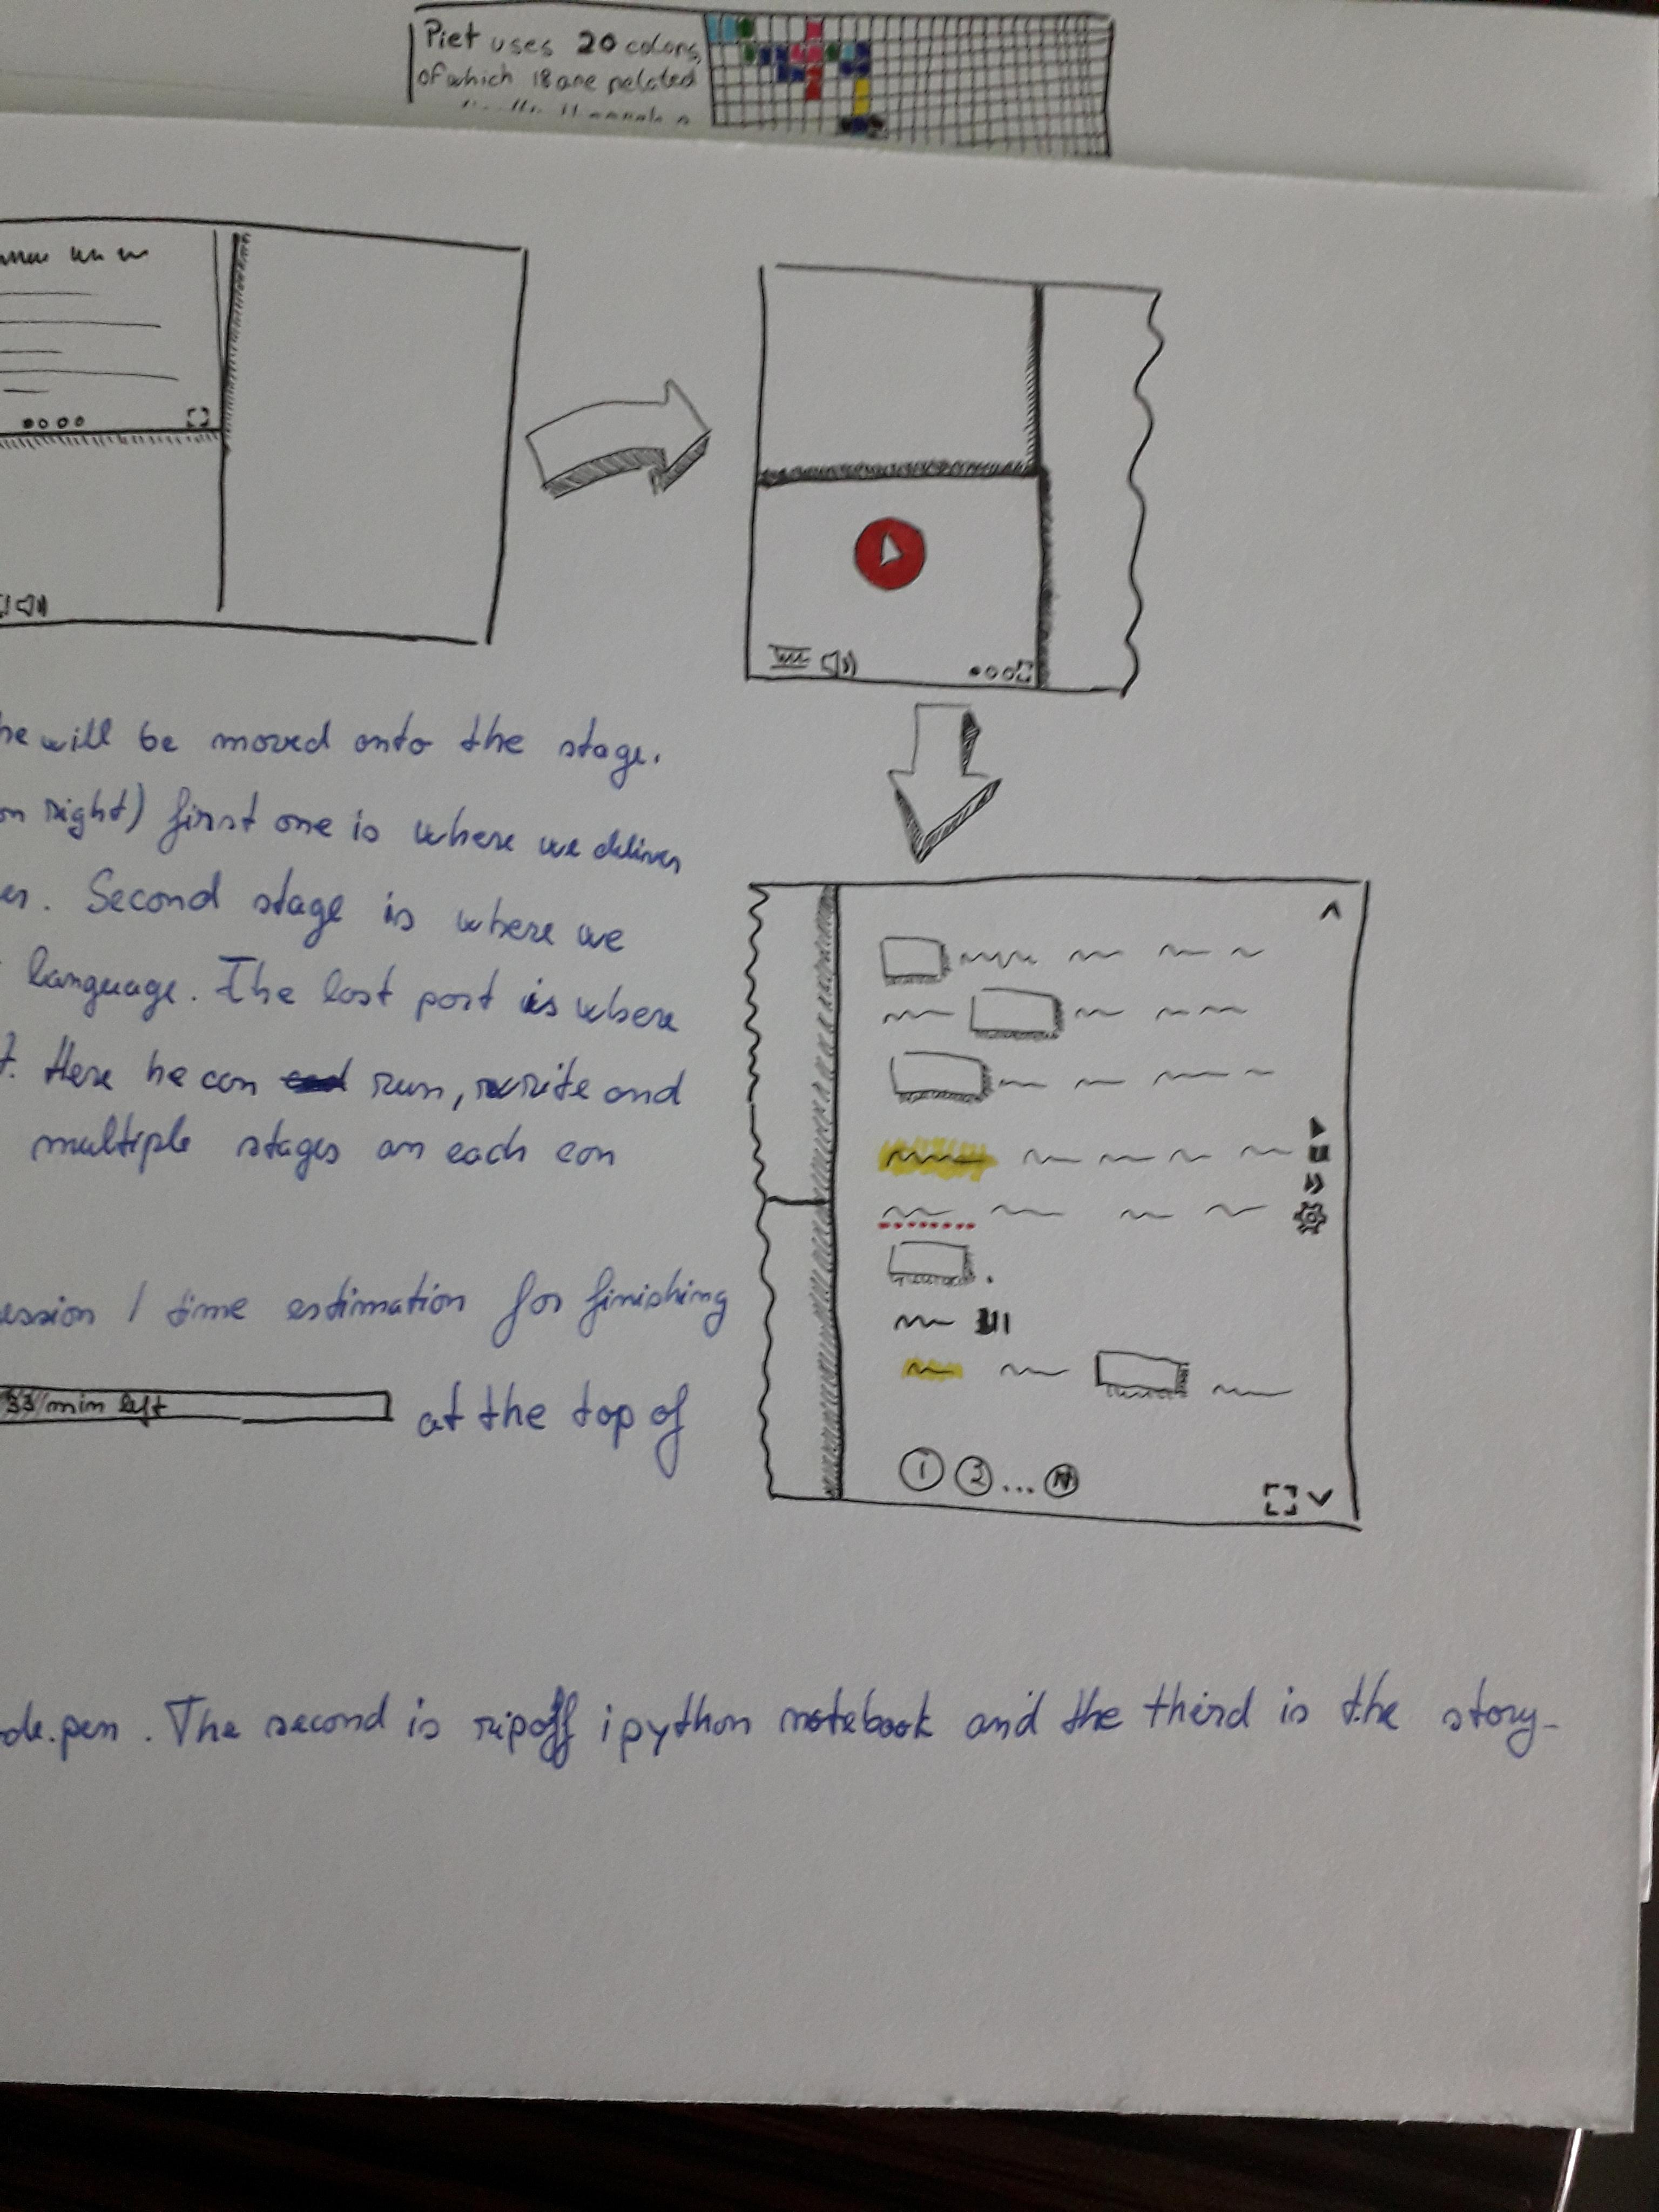 Piet uses 20 colors,
of which 18 are related
he will be moved onto the stage.
on right) first one is where we deliver
er. Second stage is where we
language. The last part is where
t. Here he can run, write and
multiple stages on each con
ession / time estimation for finishing
33 min left at the top of
1 2 ... N
ode.pen. The second is ripoff ipython notebook and the third is the story-